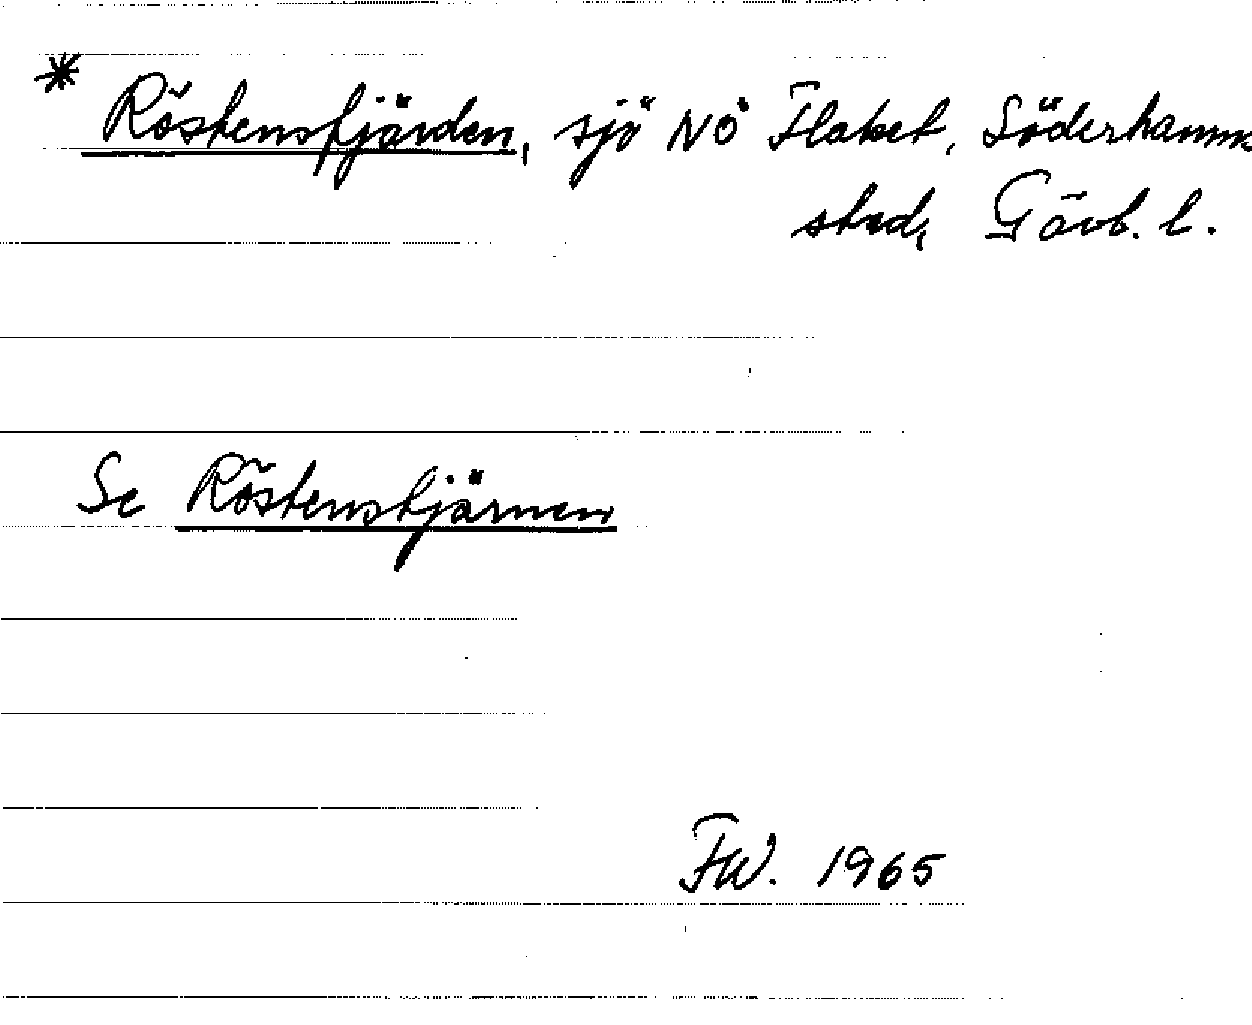 * Röstensfjärden, sjö NÖ Flaket, Söderhamns
stad, Gävb. l.
Se Röstenstjärnen
FW. 1965